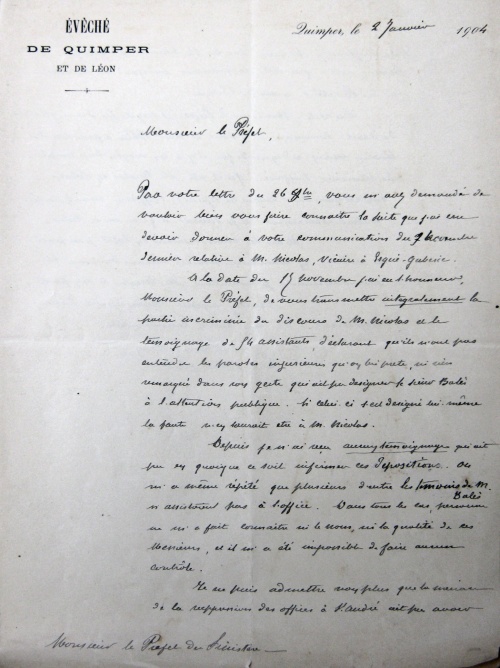 ÉVÊCHÉ
DE QUIMPER
ET DE LÉON
Quimper, le 2 Janvier 1904
Monsieur le Préfet,
Par votre lettre du 26 Xbre, vous m'avez demandé de
vouloir bien vous faire connaitre la suite que j'ai cru
devoir donner à votre communication du 9 décembre
dernier relative à M. Nicolas, vicaire à Ergué-Gabéric.
A la date du 15 novembre j'ai eu l'honneur,
Monsieur le Préfet, de vous transmettre intégralement la
partie incriminée du discours de M. Nicolas et le
témoignage de 54 assistants, déclarant qu'ils n'ont pas
entendu les paroles injurieuses qu'on lui prête, ni rien
remarqué dans son geste qui ait pu désigner le sieur Balès
à l'attention publique. Si celui-ci s'est désigné lui-même
la faute n'en saurait être à M. Nicolas.
Depuis je n'ai reçu aucun témoignage qui ait
pu en quoique ce soit infirmer ces dépositions. On
m'a même répété que plusieurs d'entre les témoins de M. Balès
n'assistaient pas à l'office. Dans tous les cas, personne
ne m'a fait connaitre ni le nom, ni la qualité de ces
Messieurs, et il m'a été impossible de faire aucun
contrôle.
Je ne puis admettre non plus que la menace
de la suppression des offices à St André ait pu avoir
Monsieur le Préfet du Finistère